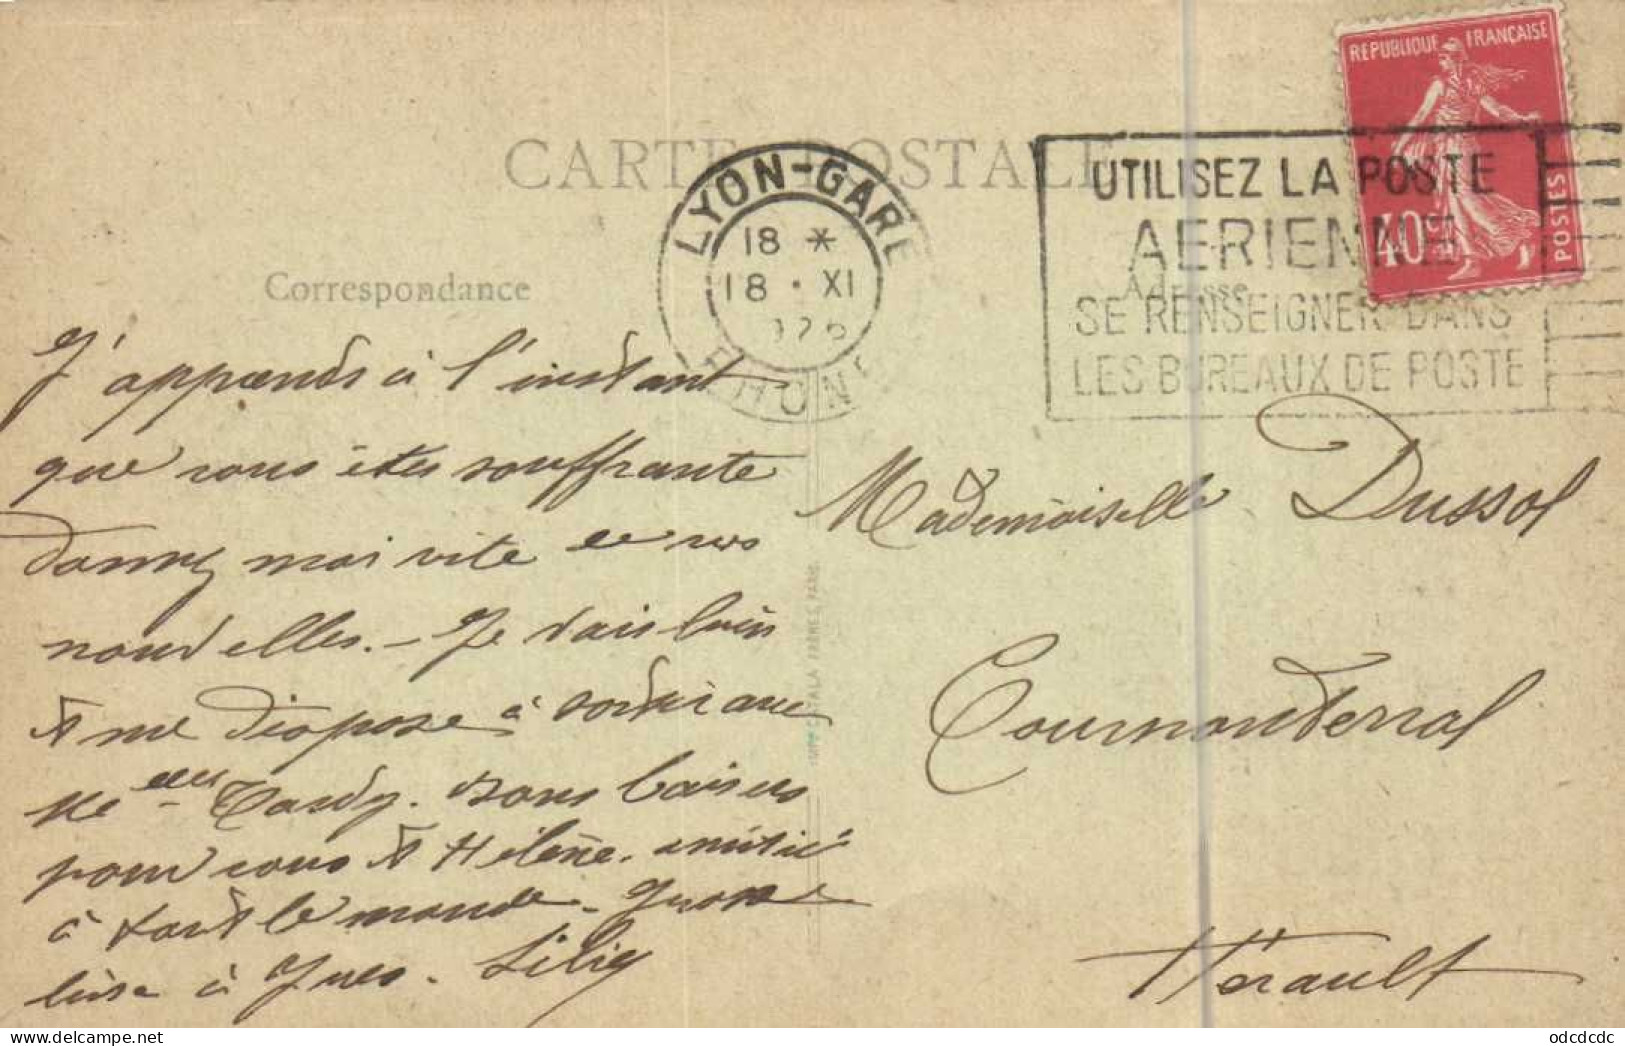 CARTE POSTALE
REPUBLIQUE FRANÇAISE
40c POSTES
LYON-GARE
18 *
18 · XI
RHONE
UTILISEZ LA POSTE
AERIENNE
SE RENSEIGNER DANS
LES BUREAUX DE POSTE
Correspondance
Adresse
J'apprends à l'instant
que vous êtes souffrante
donnez moi vite de vos
nouvelles. - Je vais bien
et me dispose à sortir avec
Me elle Tardy. Bons baisers
pour vous et Hélène. amitiés
à tout le monde. Grosse
bise à Yves. Lilie
Mademoiselle Dussol
Cournonterral
Hérault
odcdcdc